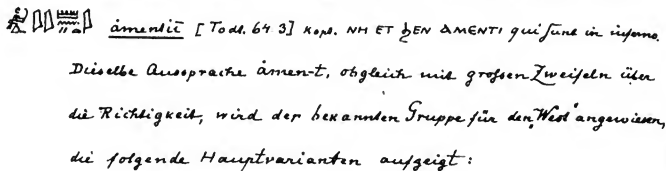 åmentiū [Todt. 64 3] Kopt. ΝΗ ΕΤ ϦΕΝ ΑΜΕΝΤΙ qui sunt in inferno.
Dieselbe Aussprache åmen-t, obgleich mit grossen Zweifeln über
die Richtigkeit, wird der bekannten Gruppe für den „West" angewiesen,
die folgende Hauptvarianten aufzeigt: